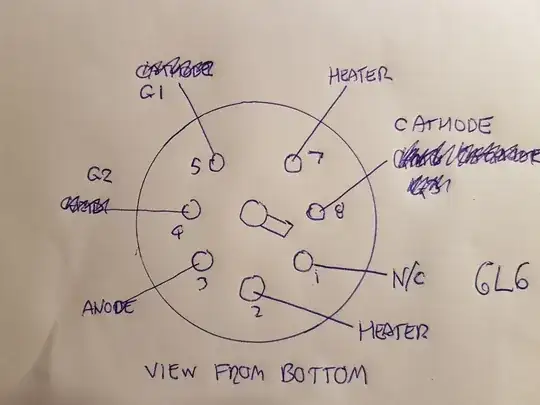 G1
HEATER
CATHODE
5
7
G2
4
8
3
1
N/C
6L6
2
ANODE
HEATER
VIEW FROM BOTTOM